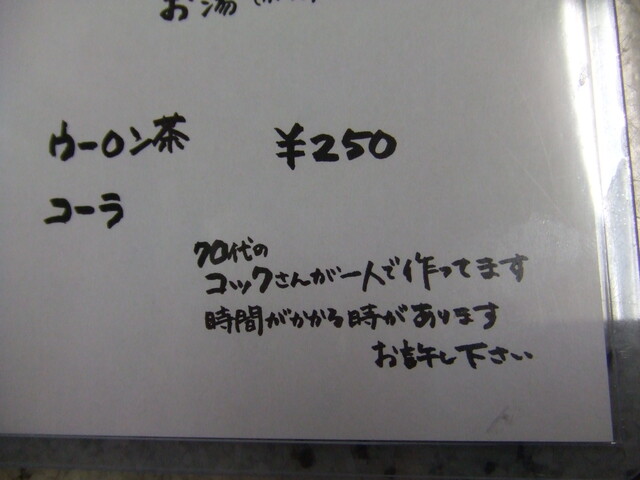 お湯
ウーロン茶 ¥250
コーラ
70代の
コックさんが一人で作ってます
時間がかかる時があります
お許し下さい